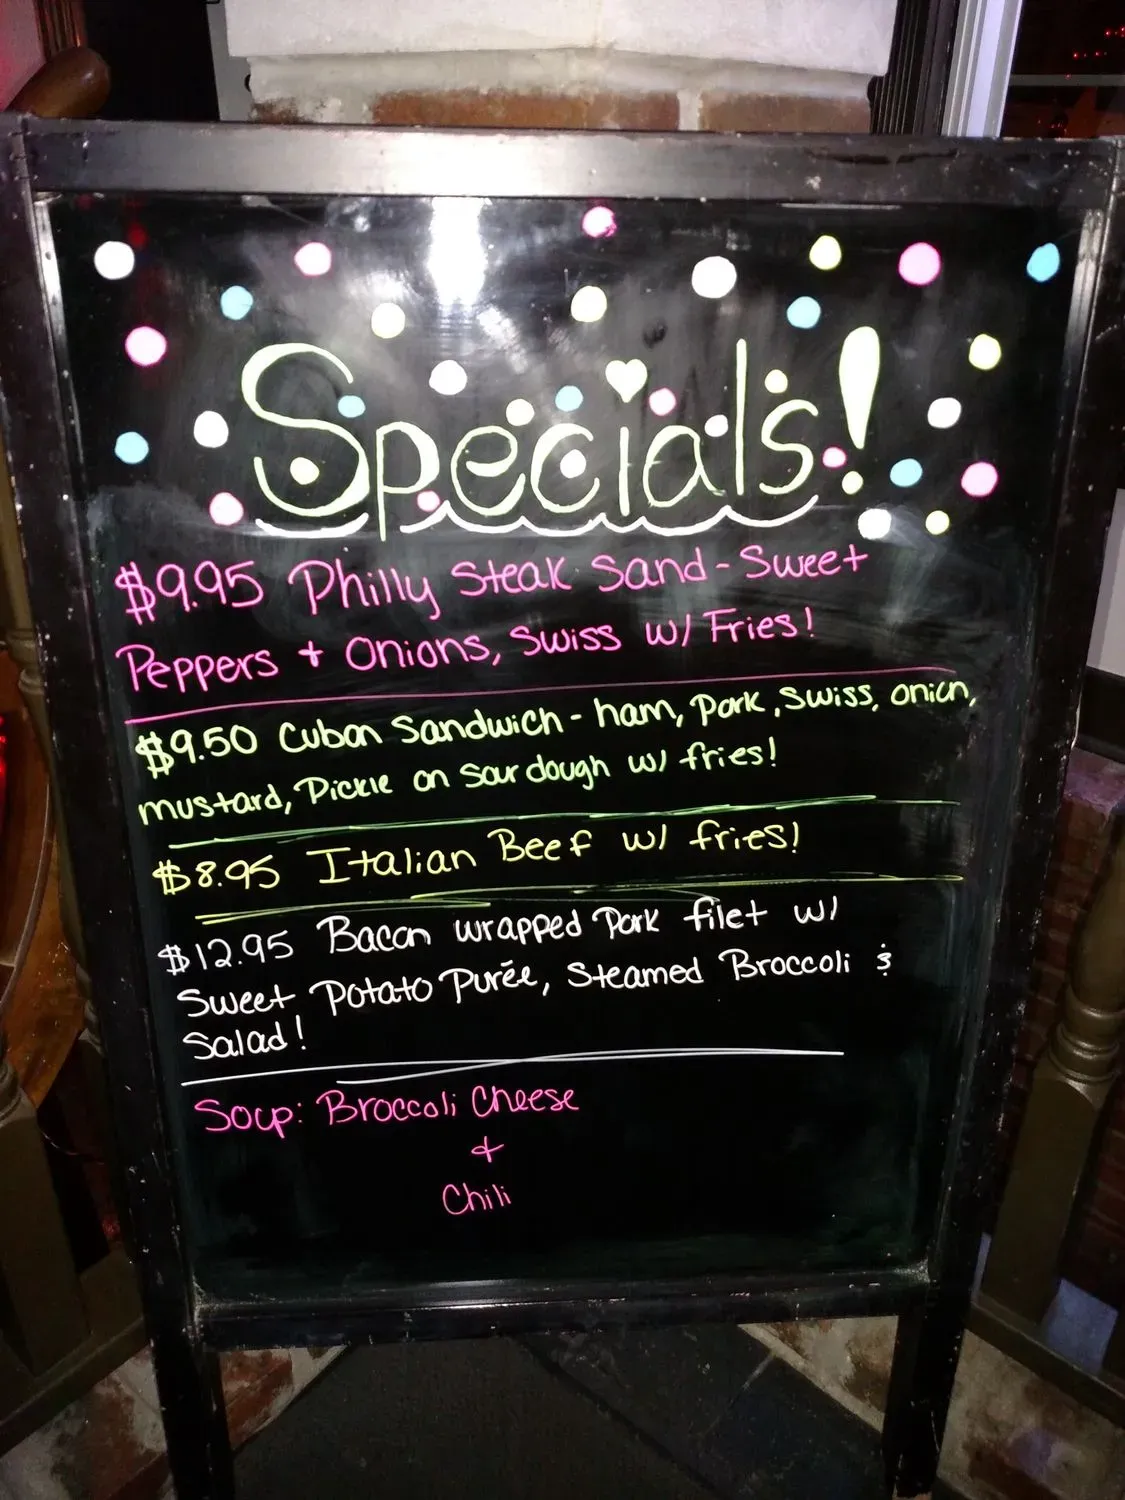 Specials!
$9.95 Philly Steak Sand - Sweet
Peppers + Onions, Swiss w/ Fries!
$9.50 Cuban Sandwich - ham, Pork, Swiss, onion,
mustard, Pickle on Sour dough w/ fries!
$8.95 Italian Beef w/ fries!
$12.95 Bacon wrapped Pork filet w/
Sweet Potato Purée, Steamed Broccoli &
Salad!
Soup: Broccoli Cheese
+
Chili